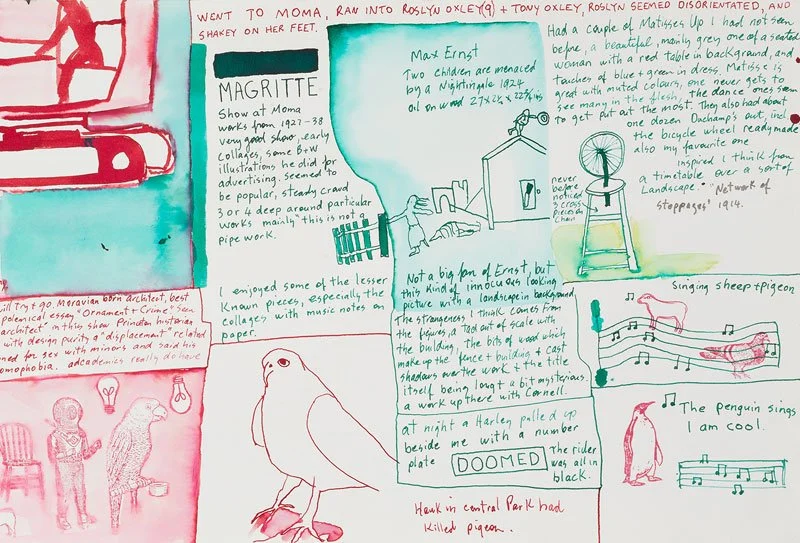 WENT TO MOMA, RAN INTO ROSLYN OXLEY(9) + TONY OXLEY, ROSLYN SEEMED DISORIENTATED, AND
SHAKEY ON HER FEET.
MAGRITTE
Show at Moma
works from 1927-38
very good show, early
Collages, some B+W
illustrations he did for
advertising. Seemed to
be popular, steady crawd
3 or 4 deep around particular
works mainly "this is not a
pipe work.
I enjoyed some of the lesser
Known pieces, especially the
collages with music notes on
paper.
Max Ernst
Two children are menaced
by a Nightingale 1924
oil on wood 27 x 22 ins
Had a couple of Matisses Up I had not seen
before, a beautiful, mainly grey one of a seated
woman with a red table in background, and
touches of blue + green in dress. Matisse is
great with muted colours, one never gets to
see many in the flesh, the dance ones seem
to get put out the most. They also had about
one dozen Duchamp's out, incl
the bicycle wheel readymade
also my favourite one
inspired I think from
a timetable over a sort of
Landscape. "Network of
stoppages' 1914.
never
before
noticed
3 cross
pieces on
Chair
Not a big fan of Ernst, but
this kind of innocuous looking
picture with a landscape in background
The strangeness I think comes from
the figures, a tad out of scale with
the building, the bits of wood which
make up the fence + building + cast
shadows over the work + the title
itself being long + a bit mysterious
a work up there with Cornell.
will try + go. Moravian born architect, best
polemical essay "Ornament + Crime" seen
architect" in this show Princton historian
with design purity a "displacement" related
ned for sex with minors and said his
omophobia. adcademics really do have
at night a Harley pulled up
beside me with a number
plate DOOMED The rider
was all in
black.
Hawk in central Park had
Killed pigeon.
Singing sheep + pigeon
The penguin sings
I am cool.